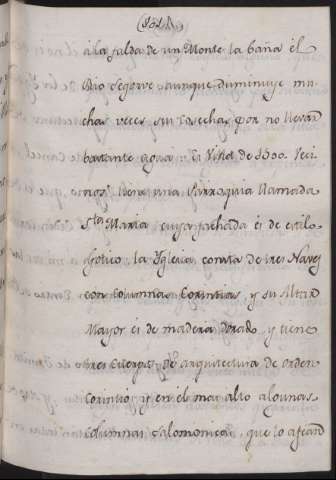 à la falda de un Monte la baña el
Rio Segorve aunque diminuye mu
chas veces su cosecha, por no llevar
bastante agua: Es Villa de 1300. Veci
nos, tiene una Parroquia llamada
Sta. Maria cuya fachada es de estilo
Gotico la Yglesia consta de tres Naves
con columnas Corintias, y su Altar
Mayor es de madera dorado, y tiene
tres Cuerpos de arquitectura de orden
Corintio, y en el mas alto algunas
columnas Salomonicas, que lo afean